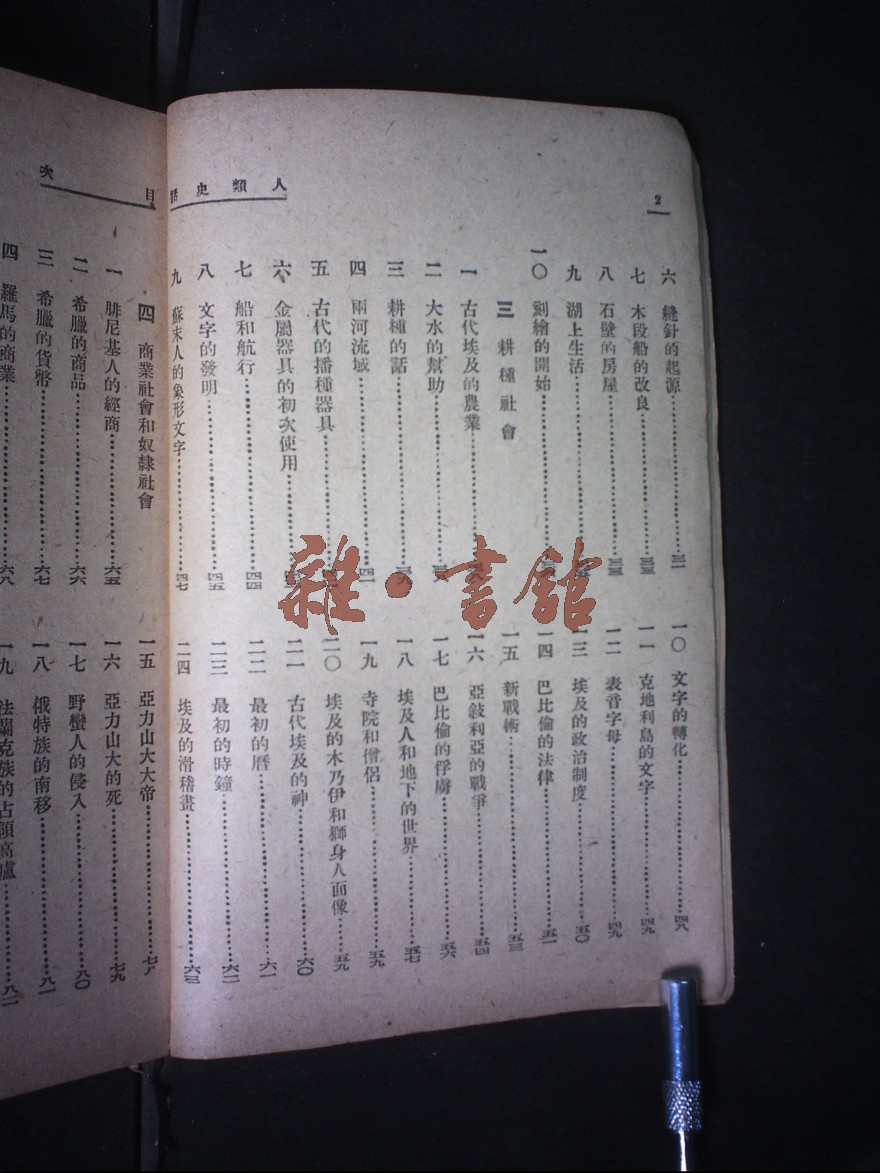 2
人類史話
六 縫針的起源……三一
七 木段船的改良……三三
八 石壁的房屋……三三
九 湖上生活
一〇 刻繪的開始
三 耕種社會
一 古代埃及的農業
二 大水的幫助
三 耕種的話
四 兩河流域……四一
五 古代的播種器具
六 金屬器具的初次使用
七 船和航行……四四
八 文字的發明……四五
九 蘇末人的象形文字……四七
一〇 文字的轉化……四八
一一 克地利島的文字……四九
一二 表音字母……四九
一三 埃及的政治制度……五〇
一四 巴比倫的法律……五一
一五 新戰術……五三
一六 亞敍利亞的戰爭……五四
一七 巴比倫的俘虜……五六
一八 埃及人和地下的世界……五七
一九 寺院和僧侶……五九
二〇 埃及的木乃伊和獅身人面像……五九
二一 古代埃及的神……六〇
二二 最初的曆……六一
二三 最初的時鐘……六二
二四 埃及的滑稽畫……六三
目次
四 商業社會和奴隸社會
一 腓尼基人的經商……六五
二 希臘的商品……六六
三 希臘的貨幣……六七
四 羅馬的商業……六八
一五 亞力山大大帝……七八
一六 亞力山大的死……七九
一七 野蠻人的侵入……八〇
一八 俄特族的南移……八一
一九 法蘭克族的占領高盧……八二
雜·書館